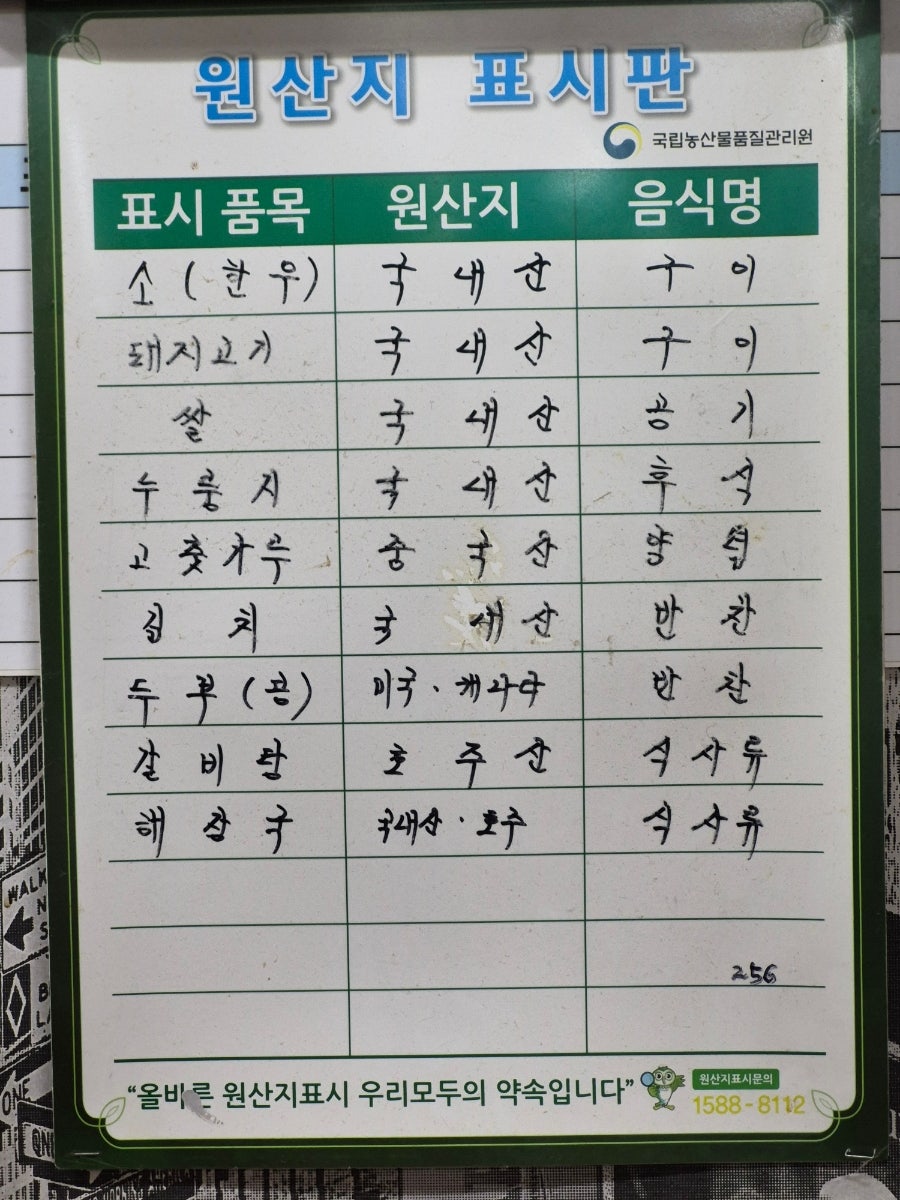 원산지 표시판
국립농산물품질관리원
표시 품목 원산지 음식명
소 (한우) 국내산 구이
돼지고기 국내산 구이
쌀 국내산 공기
누룽지 국내산 후식
고춧가루 중국산 양념
김치 국내산 반찬
두부(콩) 미국 · 캐나다 반찬
갈비탕 호주산 식사류
해장국 국내산 · 호주 식사류
256
“올바른 원산지표시 우리모두의 약속입니다”
원산지표시문의
1588-8112
WALK
ONE